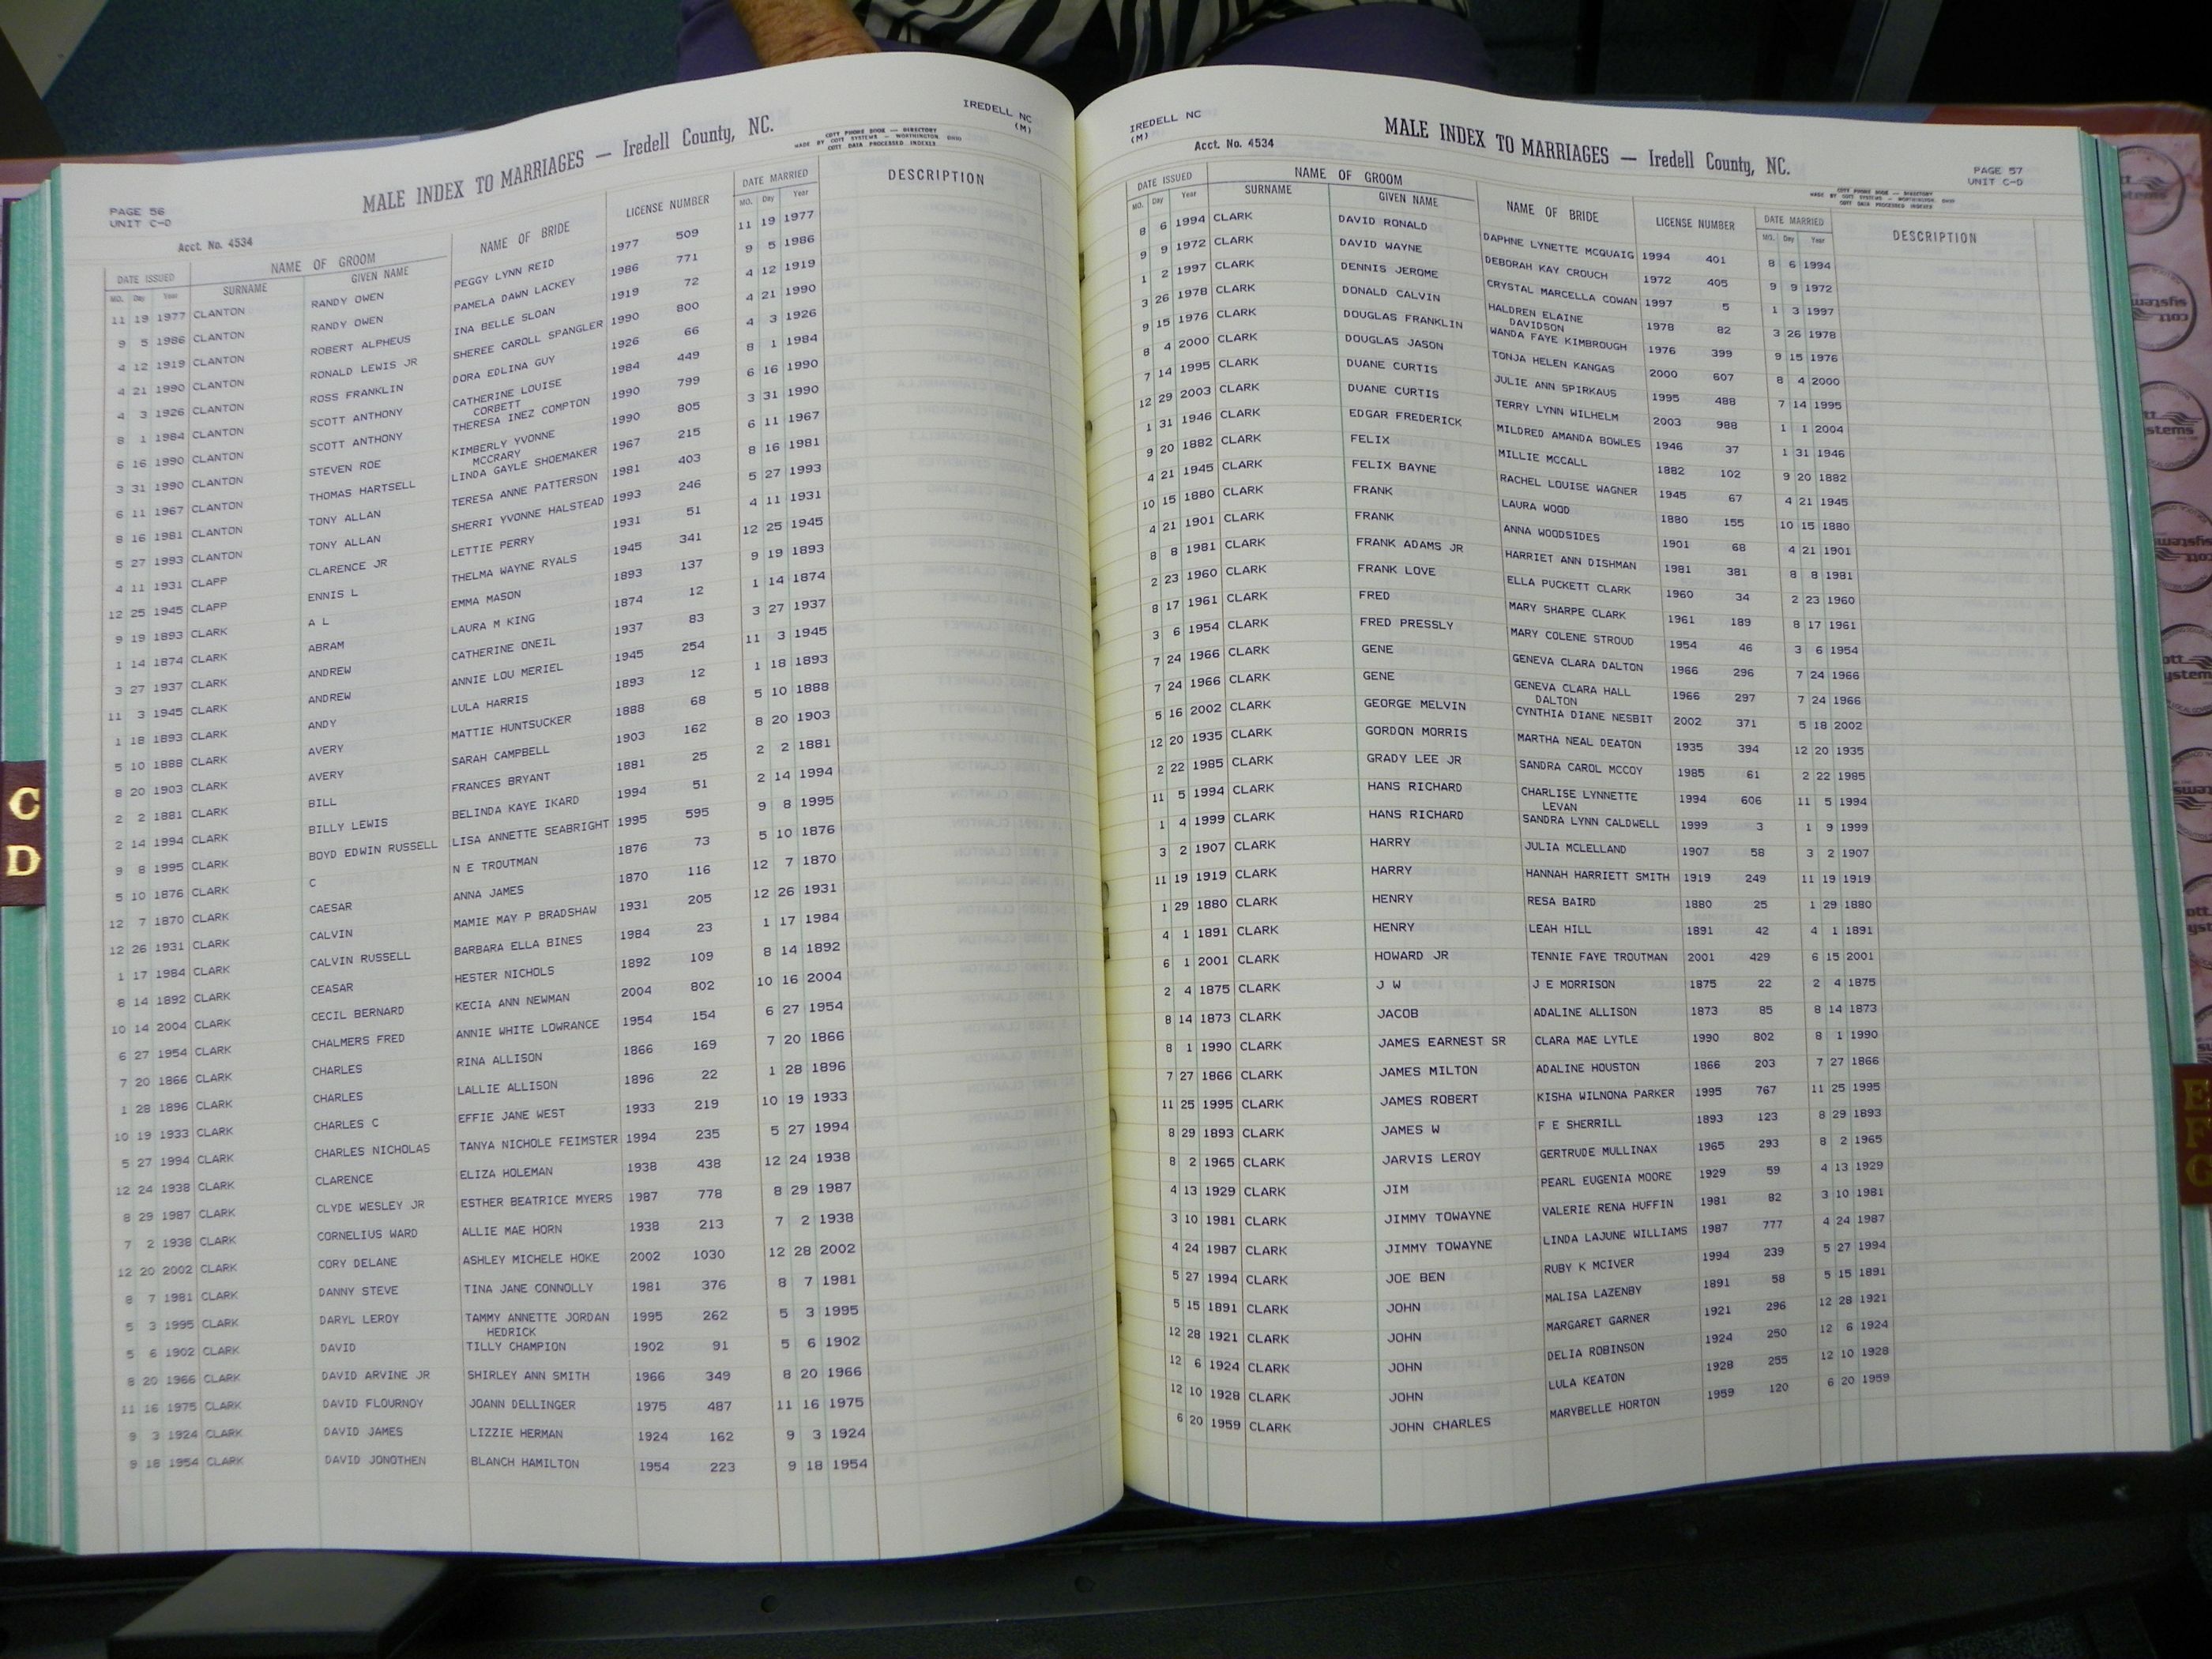 PAGE 56
UNIT C-D
MALE INDEX TO MARRIAGES — Iredell County, NC.
IREDELL NC
(M)
COTT PHONE BOOK — DIRECTORY
MADE BY COTT SYSTEMS — WORTHINGTON, OHIO
COTT DATA PROCESSED INDEXES
Acct. No. 4534
DATE ISSUED NAME OF GROOM NAME OF BRIDE LICENSE NUMBER DATE MARRIED DESCRIPTION
MO. Day Year SURNAME GIVEN NAME MO. Day Year
11 19 1977 CLANTON RANDY OWEN PEGGY LYNN REID 1977 509 11 19 1977
9 5 1986 CLANTON RANDY OWEN PAMELA DAWN LACKEY 1986 771 9 5 1986
4 12 1919 CLANTON ROBERT ALPHEUS INA BELLE SLOAN 1919 72 4 12 1919
4 21 1990 CLANTON RONALD LEWIS JR SHEREE CAROLL SPANGLER 1990 800 4 21 1990
4 3 1926 CLANTON ROSS FRANKLIN DORA EDLINA GUY 1926 66 4 3 1926
8 1 1984 CLANTON SCOTT ANTHONY CATHERINE LOUISE 1984 449 8 1 1984
CORBETT
6 16 1990 CLANTON SCOTT ANTHONY THERESA INEZ COMPTON 1990 799 6 16 1990
3 31 1990 CLANTON STEVEN ROE KIMBERLY YVONNE 1990 805 3 31 1990
MCCRARY
6 11 1967 CLANTON THOMAS HARTSELL LINDA GAYLE SHOEMAKER 1967 215 6 11 1967
8 16 1981 CLANTON TONY ALLAN TERESA ANNE PATTERSON 1981 403 8 16 1981
5 27 1993 CLANTON TONY ALLAN SHERRI YVONNE HALSTEAD 1993 246 5 27 1993
4 11 1931 CLAPP CLARENCE JR LETTIE PERRY 1931 51 4 11 1931
12 25 1945 CLAPP ENNIS L THELMA WAYNE RYALS 1945 341 12 25 1945
9 19 1893 CLARK A L EMMA MASON 1893 137 9 19 1893
1 14 1874 CLARK ABRAM LAURA M KING 1874 12 1 14 1874
3 27 1937 CLARK ANDREW CATHERINE ONEIL 1937 83 3 27 1937
11 3 1945 CLARK ANDREW ANNIE LOU MERIEL 1945 254 11 3 1945
1 18 1893 CLARK ANDY LULA HARRIS 1893 12 1 18 1893
5 10 1888 CLARK AVERY MATTIE HUNTSUCKER 1888 68 5 10 1888
8 20 1903 CLARK AVERY SARAH CAMPBELL 1903 162 8 20 1903
2 2 1881 CLARK BILL FRANCES BRYANT 1881 25 2 2 1881
2 14 1994 CLARK BILLY LEWIS BELINDA KAYE IKARD 1994 51 2 14 1994
9 8 1995 CLARK BOYD EDWIN RUSSELL LISA ANNETTE SEABRIGHT 1995 595 9 8 1995
5 10 1876 CLARK C N E TROUTMAN 1876 73 5 10 1876
12 7 1870 CLARK CAESAR ANNA JAMES 1870 116 12 7 1870
12 26 1931 CLARK CALVIN MAMIE MAY P BRADSHAW 1931 205 12 26 1931
1 17 1984 CLARK CALVIN RUSSELL BARBARA ELLA BINES 1984 23 1 17 1984
8 14 1892 CLARK CEASAR HESTER NICHOLS 1892 109 8 14 1892
10 14 2004 CLARK CECIL BERNARD KECIA ANN NEWMAN 2004 802 10 16 2004
6 27 1954 CLARK CHALMERS FRED ANNIE WHITE LOWRANCE 1954 154 6 27 1954
7 20 1866 CLARK CHARLES RINA ALLISON 1866 169 7 20 1866
1 28 1896 CLARK CHARLES LALLIE ALLISON 1896 22 1 28 1896
10 19 1933 CLARK CHARLES C EFFIE JANE WEST 1933 219 10 19 1933
5 27 1994 CLARK CHARLES NICHOLAS TANYA NICHOLE FEIMSTER 1994 235 5 27 1994
12 24 1938 CLARK CLARENCE ELIZA HOLEMAN 1938 438 12 24 1938
8 29 1987 CLARK CLYDE WESLEY JR ESTHER BEATRICE MYERS 1987 778 8 29 1987
7 2 1938 CLARK CORNELIUS WARD ALLIE MAE HORN 1938 213 7 2 1938
12 20 2002 CLARK CORY DELANE ASHLEY MICHELE HOKE 2002 1030 12 28 2002
8 7 1981 CLARK DANNY STEVE TINA JANE CONNOLLY 1981 376 8 7 1981
5 3 1995 CLARK DARYL LEROY TAMMY ANNETTE JORDAN 1995 262 5 3 1995
HEDRICK
5 6 1902 CLARK DAVID TILLY CHAMPION 1902 91 5 6 1902
8 20 1966 CLARK DAVID ARVINE JR SHIRLEY ANN SMITH 1966 349 8 20 1966
11 16 1975 CLARK DAVID FLOURNOY JOANN DELLINGER 1975 487 11 16 1975
9 3 1924 CLARK DAVID JAMES LIZZIE HERMAN 1924 162 9 3 1924
9 18 1954 CLARK DAVID JONOTHEN BLANCH HAMILTON 1954 223 9 18 1954
C
D
IREDELL NC
(M)
Acct. No. 4534
MALE INDEX TO MARRIAGES — Iredell County, NC.
PAGE 57
UNIT C-D
COTT PHONE BOOK — DIRECTORY
MADE BY COTT SYSTEMS — WORTHINGTON, OHIO
COTT DATA PROCESSED INDEXES
DATE ISSUED NAME OF GROOM NAME OF BRIDE LICENSE NUMBER DATE MARRIED DESCRIPTION
MO. Day Year SURNAME GIVEN NAME MO. Day Year
8 6 1994 CLARK DAVID RONALD DAPHNE LYNETTE MCQUAIG 1994 401 8 6 1994
9 9 1972 CLARK DAVID WAYNE DEBORAH KAY CROUCH 1972 405 9 9 1972
1 2 1997 CLARK DENNIS JEROME CRYSTAL MARCELLA COWAN 1997 5 1 3 1997
3 26 1978 CLARK DONALD CALVIN HALDREN ELAINE 1978 82 3 26 1978
DAVIDSON
9 15 1976 CLARK DOUGLAS FRANKLIN WANDA FAYE KIMBROUGH 1976 399 9 15 1976
8 4 2000 CLARK DOUGLAS JASON TONJA HELEN KANGAS 2000 607 8 4 2000
7 14 1995 CLARK DUANE CURTIS JULIE ANN SPIRKAUS 1995 488 7 14 1995
12 29 2003 CLARK DUANE CURTIS TERRY LYNN WILHELM 2003 988 1 1 2004
1 31 1946 CLARK EDGAR FREDERICK MILDRED AMANDA BOWLES 1946 37 1 31 1946
9 20 1882 CLARK FELIX MILLIE MCCALL 1882 102 9 20 1882
4 21 1945 CLARK FELIX BAYNE RACHEL LOUISE WAGNER 1945 67 4 21 1945
10 15 1880 CLARK FRANK LAURA WOOD 1880 155 10 15 1880
4 21 1901 CLARK FRANK ANNA WOODSIDES 1901 68 4 21 1901
8 8 1981 CLARK FRANK ADAMS JR HARRIET ANN DISHMAN 1981 381 8 8 1981
2 23 1960 CLARK FRANK LOVE ELLA PUCKETT CLARK 1960 34 2 23 1960
8 17 1961 CLARK FRED MARY SHARPE CLARK 1961 189 8 17 1961
3 6 1954 CLARK FRED PRESSLY MARY COLENE STROUD 1954 46 3 6 1954
7 24 1966 CLARK GENE GENEVA CLARA DALTON 1966 296 7 24 1966
7 24 1966 CLARK GENE GENEVA CLARA HALL 1966 297 7 24 1966
DALTON
5 16 2002 CLARK GEORGE MELVIN CYNTHIA DIANE NESBIT 2002 371 5 18 2002
12 20 1935 CLARK GORDON MORRIS MARTHA NEAL DEATON 1935 394 12 20 1935
2 22 1985 CLARK GRADY LEE JR SANDRA CAROL MCCOY 1985 61 2 22 1985
11 5 1994 CLARK HANS RICHARD CHARLISE LYNNETTE 1994 606 11 5 1994
LEVAN
1 4 1999 CLARK HANS RICHARD SANDRA LYNN CALDWELL 1999 3 1 9 1999
3 2 1907 CLARK HARRY JULIA MCLELLAND 1907 58 3 2 1907
11 19 1919 CLARK HARRY HANNAH HARRIETT SMITH 1919 249 11 19 1919
1 29 1880 CLARK HENRY RESA BAIRD 1880 25 1 29 1880
4 1 1891 CLARK HENRY LEAH HILL 1891 42 4 1 1891
6 1 2001 CLARK HOWARD JR TENNIE FAYE TROUTMAN 2001 429 6 15 2001
2 4 1875 CLARK J W J E MORRISON 1875 22 2 4 1875
8 14 1873 CLARK JACOB ADALINE ALLISON 1873 85 8 14 1873
8 1 1990 CLARK JAMES EARNEST SR CLARA MAE LYTLE 1990 802 8 1 1990
7 27 1866 CLARK JAMES MILTON ADALINE HOUSTON 1866 203 7 27 1866
11 25 1995 CLARK JAMES ROBERT KISHA WILNONA PARKER 1995 767 11 25 1995
8 29 1893 CLARK JAMES W F E SHERRILL 1893 123 8 29 1893
8 2 1965 CLARK JARVIS LEROY GERTRUDE MULLINAX 1965 293 8 2 1965
4 13 1929 CLARK JIM PEARL EUGENIA MOORE 1929 59 4 13 1929
3 10 1981 CLARK JIMMY TOWAYNE VALERIE RENA HUFFIN 1981 82 3 10 1981
4 24 1987 CLARK JIMMY TOWAYNE LINDA LAJUNE WILLIAMS 1987 777 4 24 1987
5 27 1994 CLARK JOE BEN RUBY K MCIVER 1994 239 5 27 1994
5 15 1891 CLARK JOHN MALISA LAZENBY 1891 58 5 15 1891
12 28 1921 CLARK JOHN MARGARET GARNER 1921 296 12 28 1921
12 6 1924 CLARK JOHN DELIA ROBINSON 1924 250 12 6 1924
12 10 1928 CLARK JOHN LULA KEATON 1928 255 12 10 1928
6 20 1959 CLARK JOHN CHARLES MARYBELLE HORTON 1959 120 6 20 1959
E
F
G